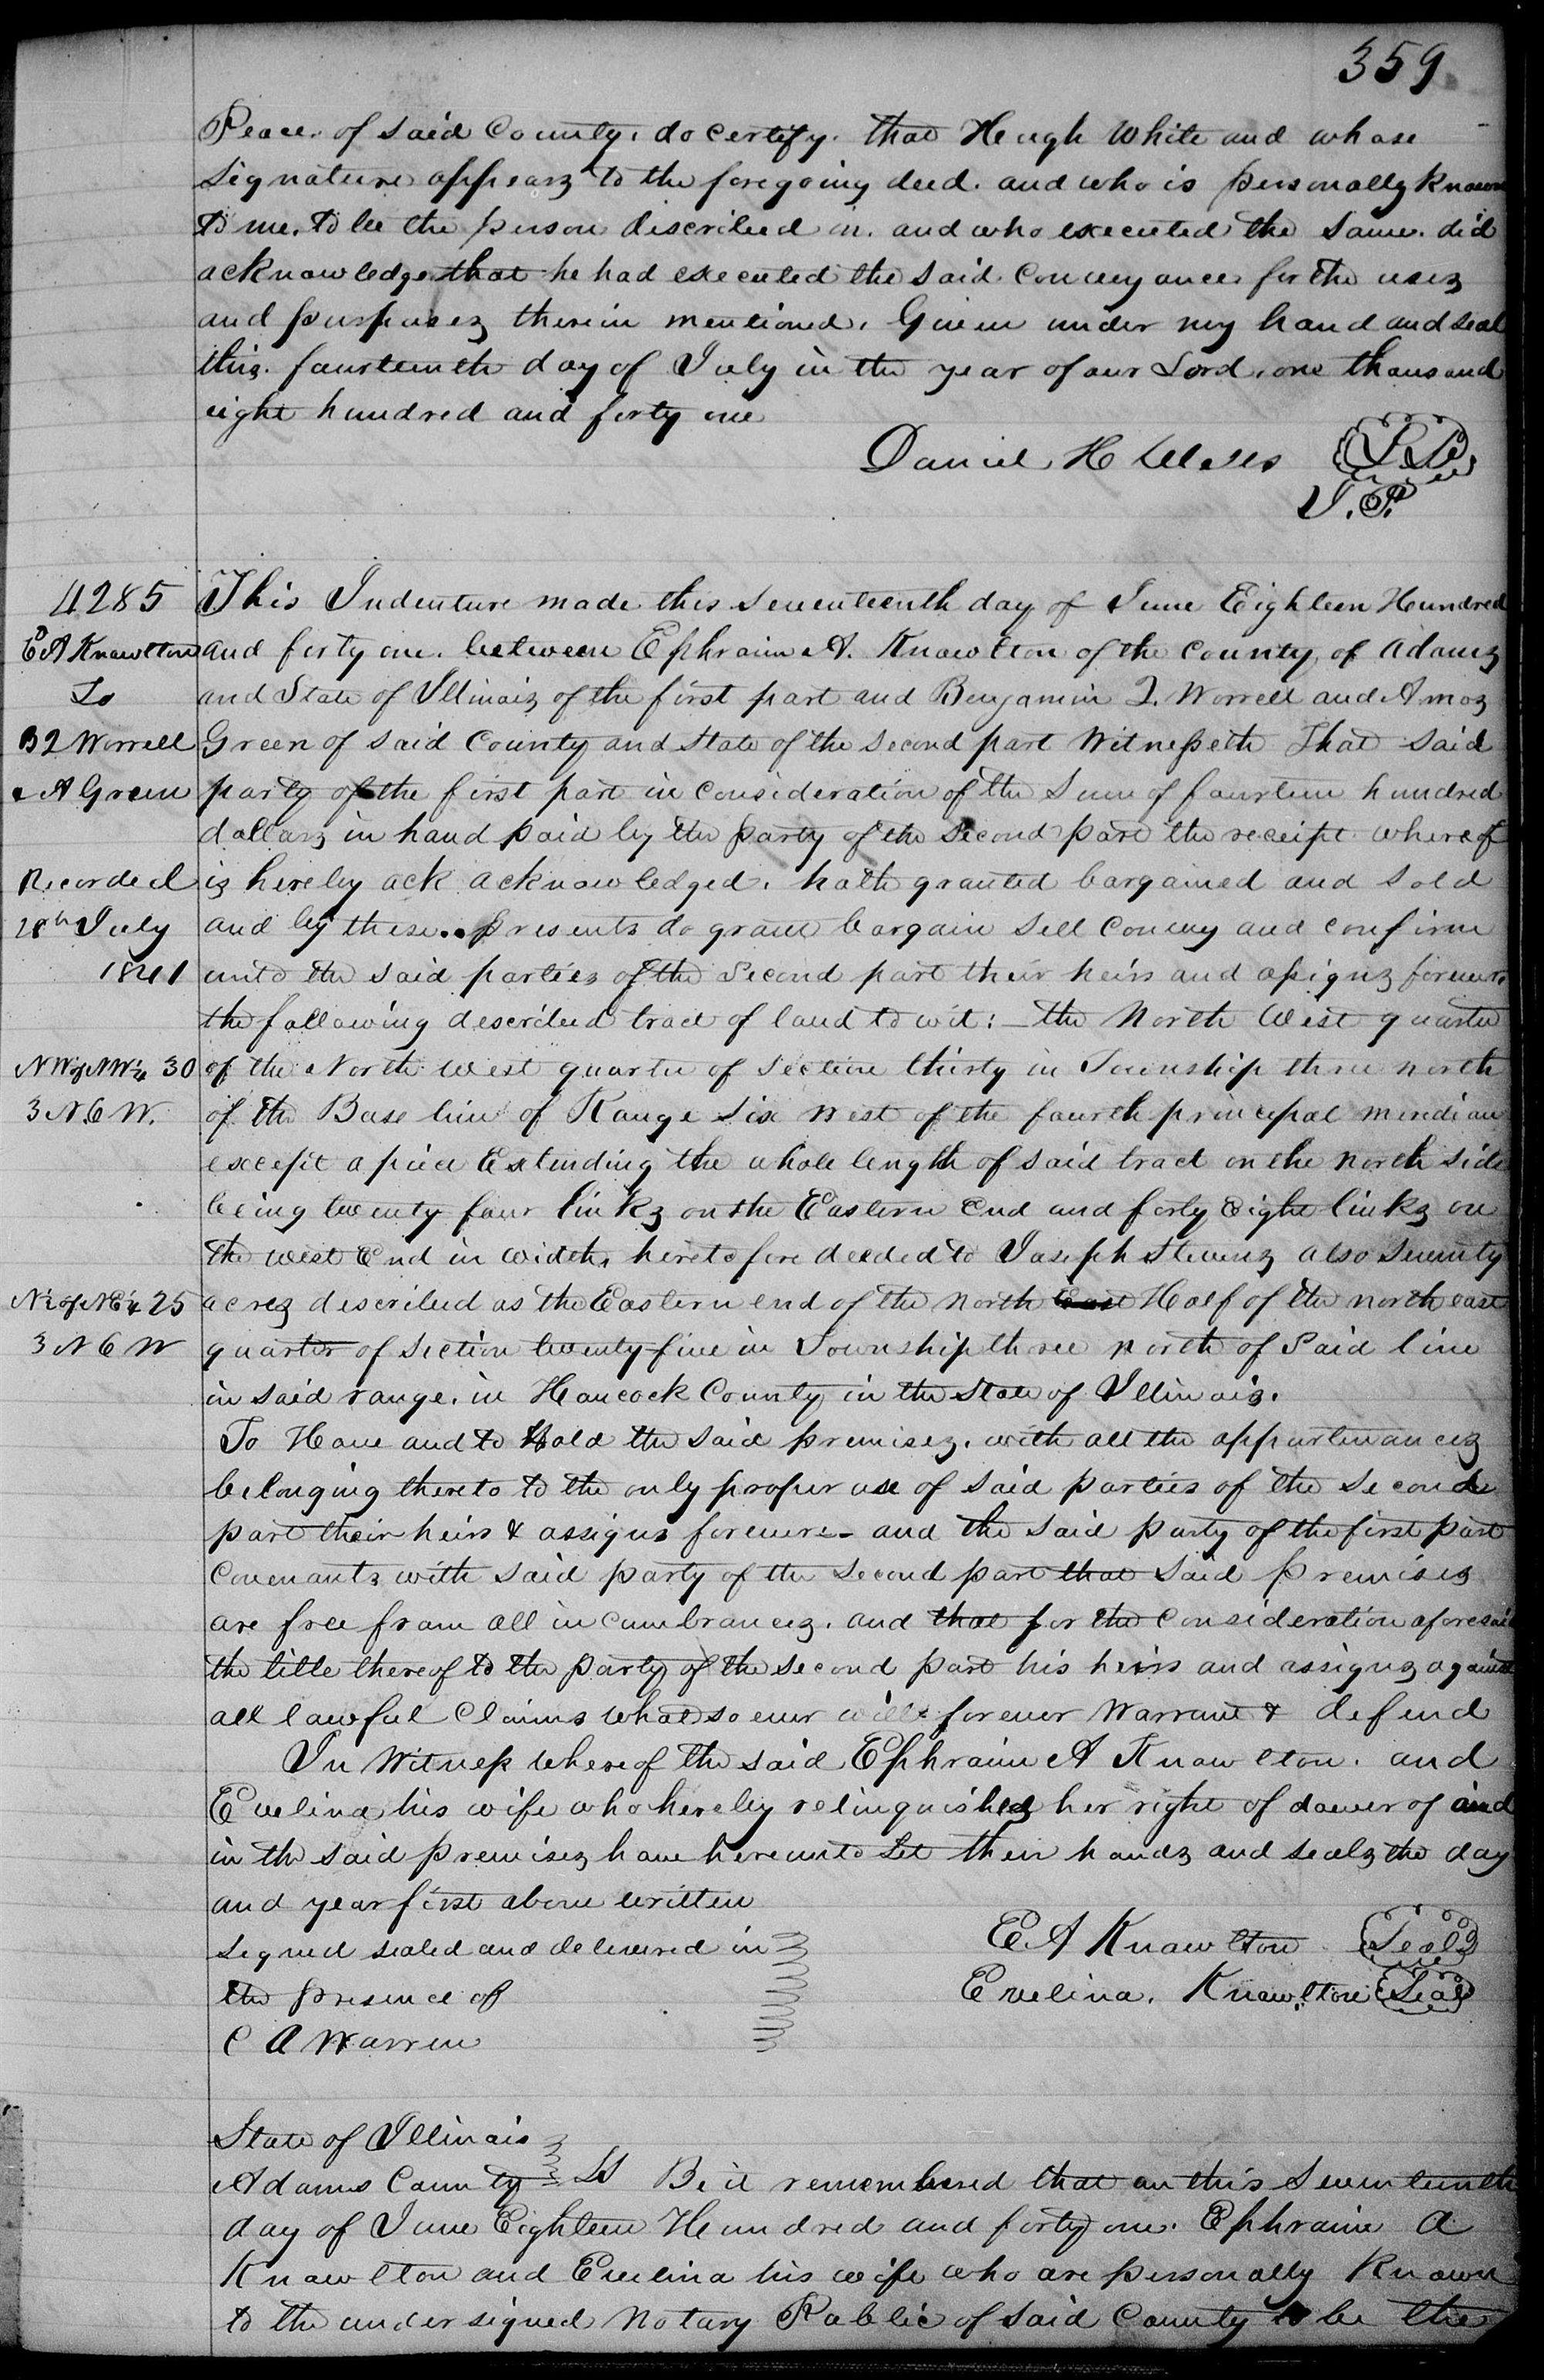 359
Peace of said County, do certify that Hugh White and whose
signature appears to the foregoing deed, and who is personally known
to me, to be the person discribed in, and who executed the same, did
acknowledge that he had executed the said Conveyance for the uses
and purposes therein mentioned. Given under my hand and seal
this fourteenth day of July in the year of our Lord, one thousand
eight hundred and forty one
Daniel H Wells
J.P.
4285
E A Knowlton
To
B I Worrell
& A Green
Recorded
July
1841
NW of NW¼ 30
3 N. 6 W.
N½ of NE¼ 25
3 N 6 W
This Indenture made this seventeenth day of June Eighteen Hundred
and forty one, between Ephraim A. Knowlton of the County of Adams
and State of Illinois of the first part and Benjamin I. Worrell and Amos
Green of said County and State of the second part Witnesseth That said
party of the first part in consideration of the sum of fourteen hundred
dollars in hand paid by the party of the second part the receipt whereof
is hereby ack acknowledged, hath granted bargained and sold
and by these presents do grant bargain sell convey and confirm
unto the said parties of the second part their heirs and assigns forever,
the following described tract of land to wit: – the North West quarter
of the North west quarter of section thirty in Township three north
of the Base line of Range six west of the fourth principal meridian
except a piece Extending the whole length of said tract on the north side
being twenty four links on the Eastern End and forty eight links on
the west End in width, heretofore deeded to Joseph Stevens also seventy
acres described as the Eastern end of the north East Half of the north east
quarter of section twenty-five in Township three north of said line
in said range, in Hancock County in the state of Illinois.
To Have and to Hold the said premises, with all the appurtenances
belonging thereto to the only proper use of said parties of the second
part their heirs & assigns forever – and the said party of the first part
Covenants with said party of the second part that said premises
are free from all incumbrances, and that for the consideration aforesaid
the title thereof to the party of the second part his heirs and assigns against
all lawful Claims whatsoever will forever Warrant & defend
In Witness whereof the said Ephraim A Knowlton, and
Evelina his wife who hereby relinquishes her right of dower of and
in the said premises have hereunto set their hands and seals the day
and year first above written
Signed sealed and delivered in
the presence of
C A Warren
E A Knowlton Seal
Evelina Knowlton Seal
State of Illinois
Adams County SS Be it remembered that on this seventeenth
day of June Eighteen Hundred and forty one. Ephraim A
Knowlton and Evelina his wife who are personally Known
to the undersigned Notary Public of said County to be the